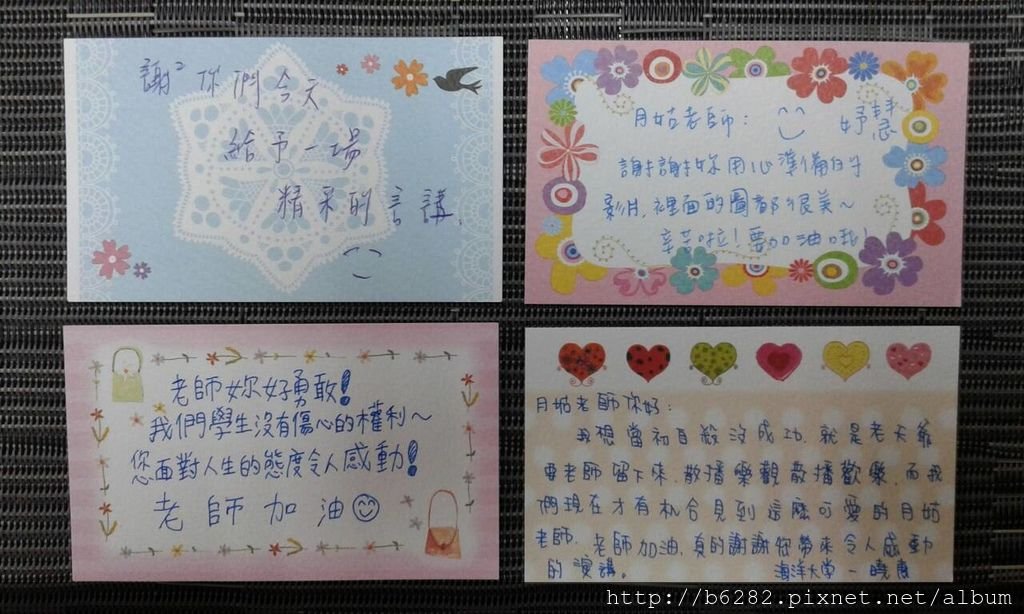 謝²你們今天
給予一場
精采的言講.
月姑老師： 妤慧
謝謝妳用心準備的
影片.裡面的圖都很美~
辛苦啦!要加油哦!
老師妳好勇敢!
我們學生沒有傷心的權利~
您面對人生的態度令人感動!
老師加油
月姑老師你好：
我想當初自殺沒成功.就是老天爺
要老師留下來.散播樂觀散播歡樂.而我
們現在才有机会見到這麼可愛的月姑
老師.老師加油.真的謝謝您帶來令人感動
的演講。 海洋大學 一曉惠
http://b6282.pixnet.net/album